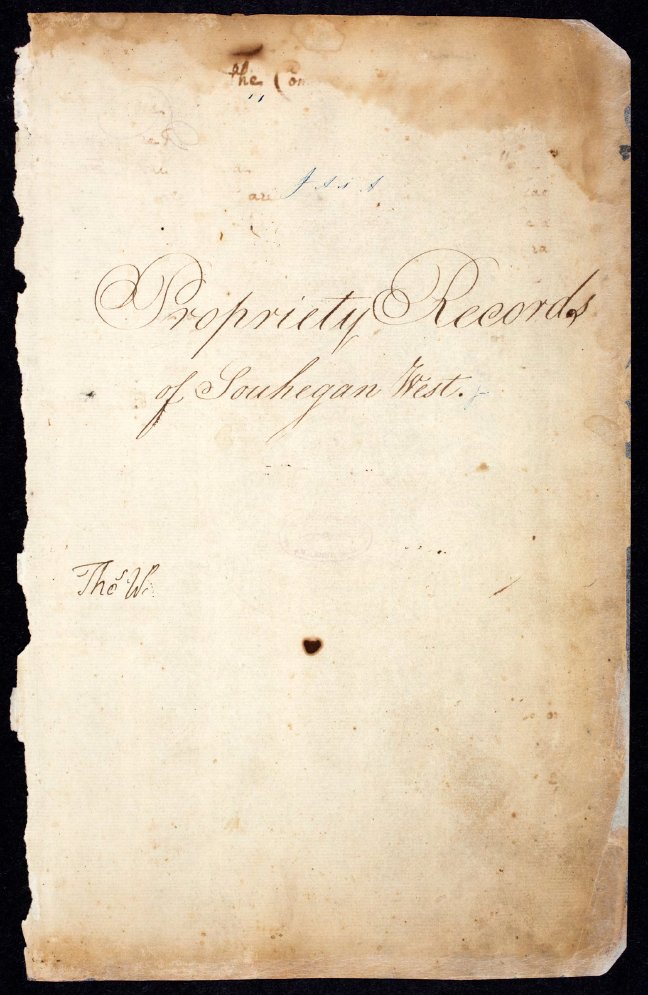 the Com
Propriety Records
of Souhegan West.
Thos W